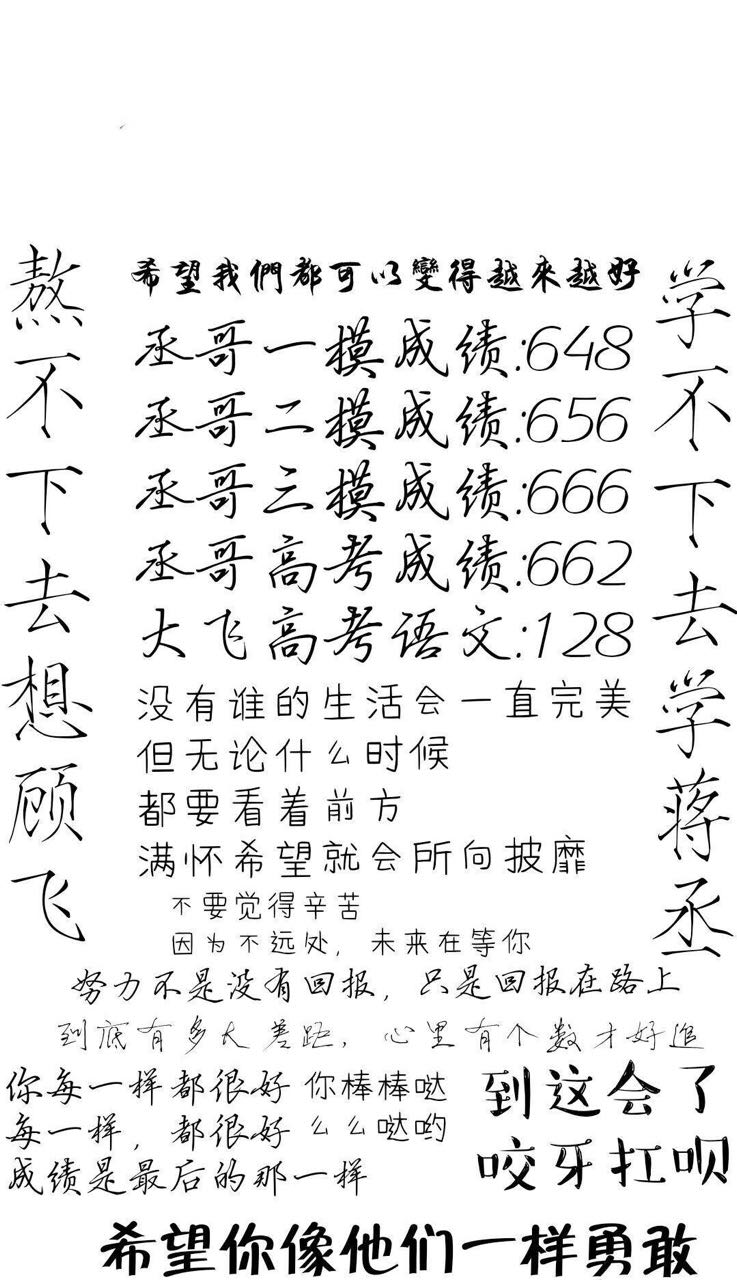 熬不下去想顾飞
希望我們都可以變得越來越好
丞哥一摸成绩:648
丞哥二摸成绩:656
丞哥三摸成绩:666
丞哥高考成绩:662
大飞高考语文:128
没有谁的生活会一直完美
但无论什么时候
都要看着前方
满怀希望就会所向披靡
不要觉得辛苦
因为不远处，未来在等你
学不下去学蒋丞
努力不是没有回报，只是回报在路上
到底有多大差距，心里有个数才好追
你每一样都很好 你棒棒哒
每一样，都很好 么么哒哟
成绩是最后的那一样
到这会了
咬牙扛呗
希望你像他们一样勇敢